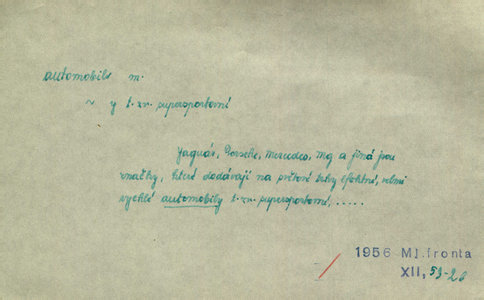 automobil m.
~ y t. zv. supersportovní
Jaguár, Porsche, Mercedes, MG a jiná jsou
značky, které dodávají na světové trhy efektní, velmi
rychlé automobily t. zv. supersportovní, .....
1956 Ml. fronta
XII, 53-26